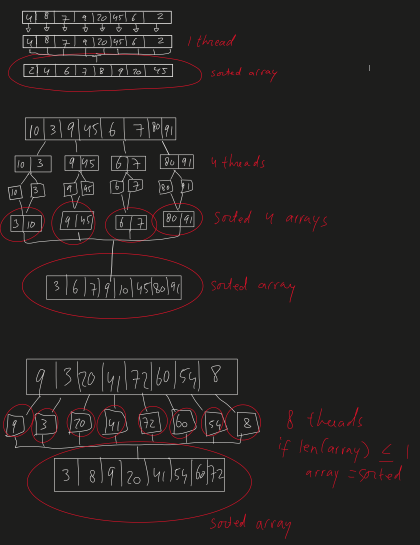 4 8 7 9 20 45 6 2
4 8 7 9 20 45 6 2
1 thread
2 4 6 7 8 9 20 45
sorted array
10 3 9 45 6 7 80 91
10 3 9 45 6 7 80 91
4 threads
10 3 9 45 6 7 80 91
3 10 9 45 6 7 80 91
Sorted 4 arrays
3 6 7 9 10 45 80 91
sorted array
9 3 20 41 72 60 54 8
9 3 20 41 72 60 54 8
8 threads
if len(array) ≤ 1
array = sorted
3 8 9 20 41 54 60 72
sorted array